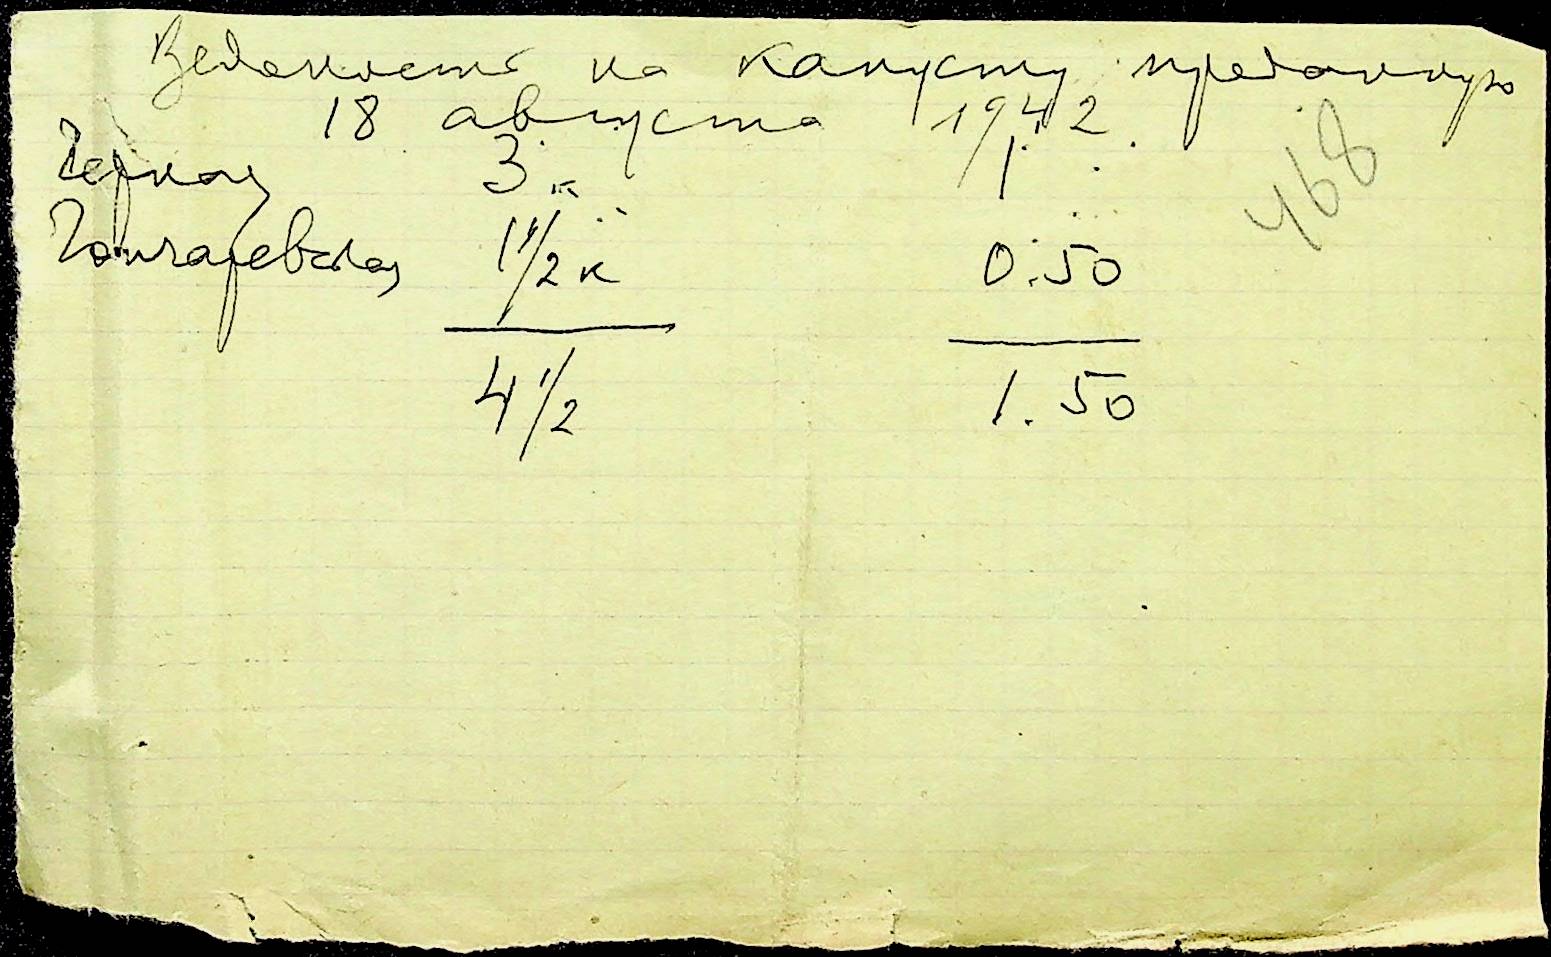 Ведомость на капусту проданную
18 августа 1942
468
Черная 3 к 1.
Гончаревская 1 1/2 к 0.50
4 1/2 1.50